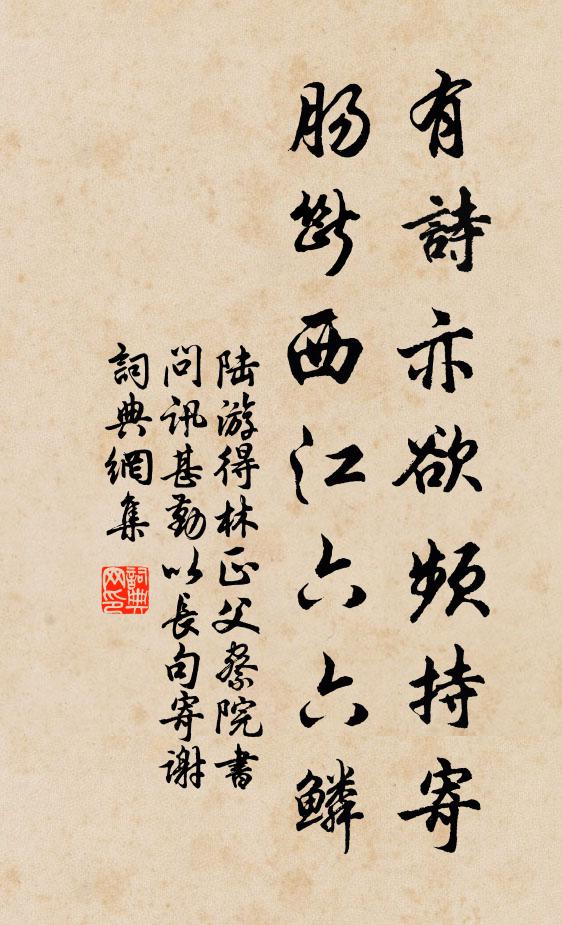 有詩亦欲頻持寄
腸斷西江六六鱗
陸游得林正父察院書
問訊甚勤以長句寄謝
詞典網集
詞典网印